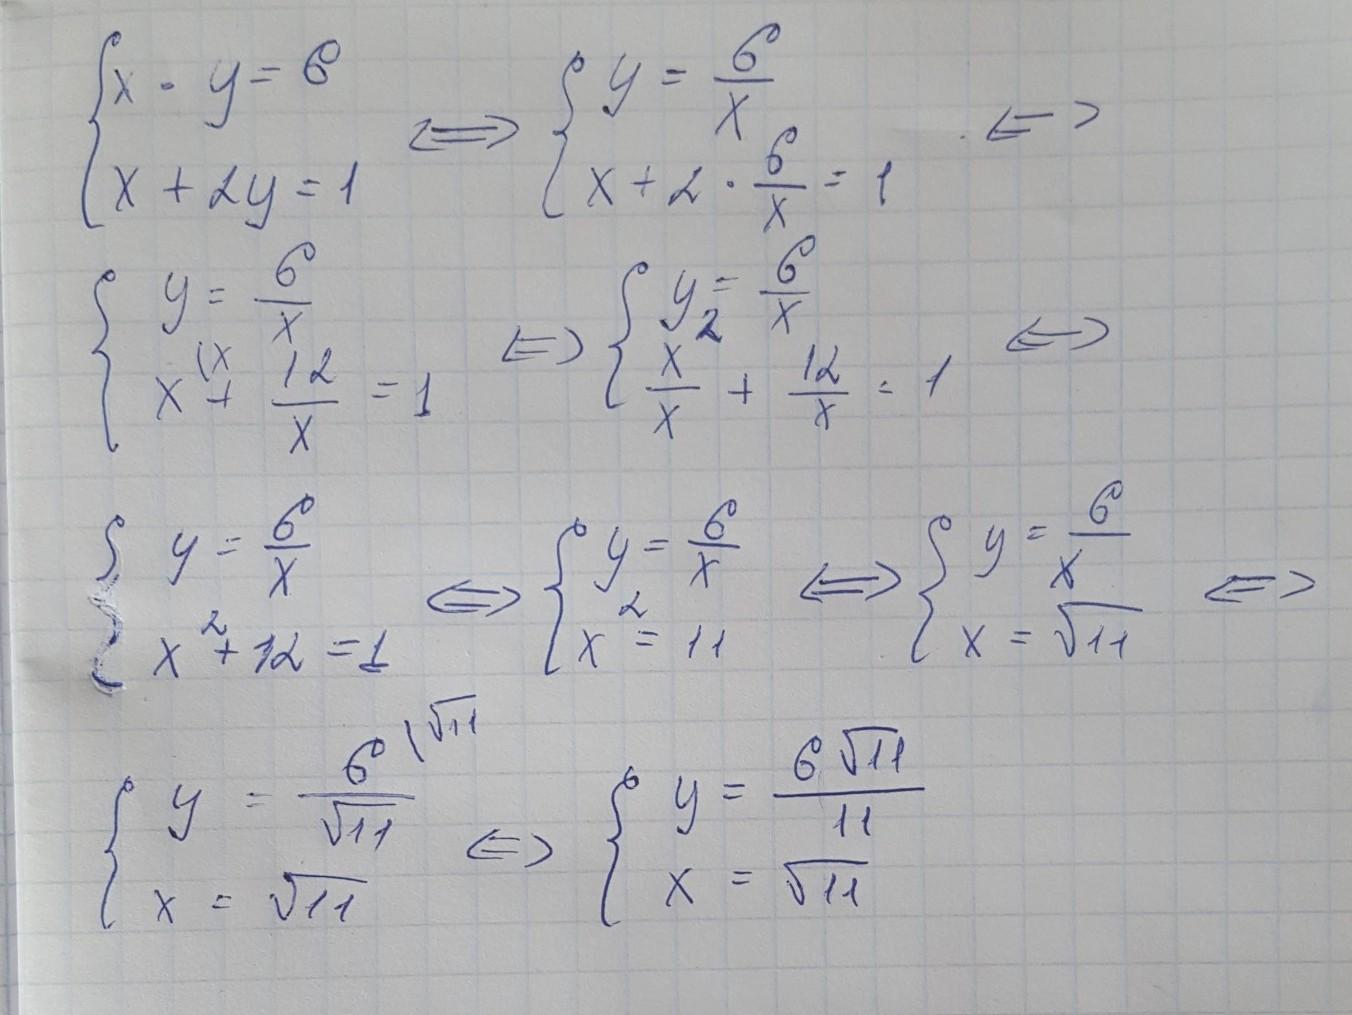 { x · y = 6
x + 2y = 1 ⟺ { y = 6/x
x + 2 · 6/x = 1 ⟺
{ y = 6/x
x ⁽ˣ + 12/x = 1 ⟺ { y = 6/x
x²/x + 12/x = 1 ⟺
{ y = 6/x
x² + 12 = 1 ⟺ { y = 6/x
x² = 11 ⟺ { y = 6/x
x = √11 ⟺
{ y = 6/√11 (√11
x = √11 ⟺ { y = 6√11/11
x = √11